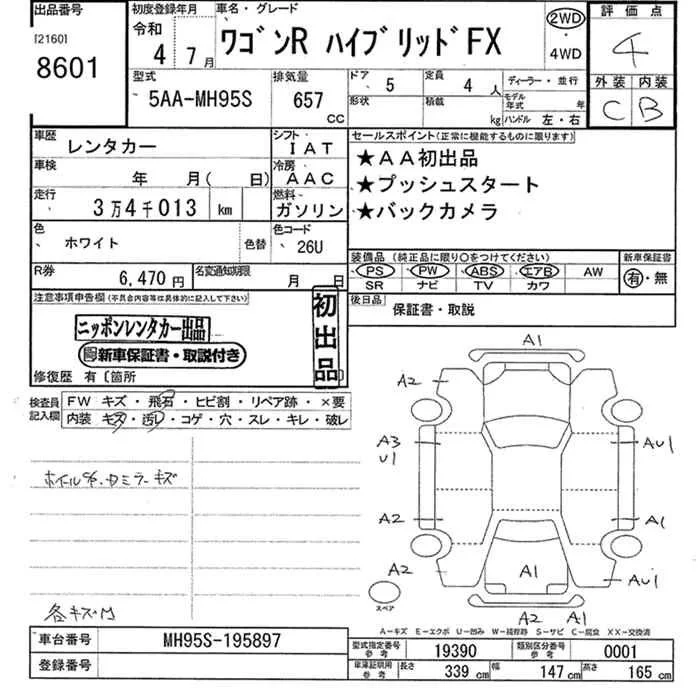 出品番号
[2160]
8601
初度登録年月
令和
4 7月
車名・グレード
ワゴンR ハイブリッドFX
2WD
・
4WD
評価点
4
外装 内装
C B
型式
5AA-MH95S
排気量
657
CC
ドア
5
定員
4 人
ディーラー・並行
形状
積載
kg
モデル年式 年
ハンドル 左・右
車歴
レンタカー
シフト
IAT
車検
年 月( 日)
冷房
AAC
走行
3万4千013 km
燃料
ガソリン
色
ホワイト
色替
色コード
26U
R券
6,470円
名変通知期限
月 日
セールスポイント(正常に機能するものに限ります)
★AA初出品
★プッシュスタート
★バックカメラ
装備品(純正品に限り〇をつけてください)
PS PW ABS エアB AW
SR ナビ TV カワ
新車保証書
有・無
後日品
保証書・取説
注意事項申告欄(不具合内容等は具体的に記入して下さい)
ニッポンレンタカー出品
新車保証書・取説付き
初出品
修復歴 有〔箇所
検査員
記入欄
FW キズ・飛石・ヒビ割・リペア跡・×要
内装 キズ・汚レ・コゲ・穴・スレ・キレ・破レ
キズ
各キズ凹
A1
A2
A3
U1
AU1
A2
A1
A2
A1
AU1
A2 A1
スペア
A-キズ E-エクボ U-凹み W-補修跡 S-サビ C-腐食 XX-交換済
車台番号
MH95S-195897
登録番号
型式指定番号
参考
19390
類別区分番号
参考
0001
車庫証明用
参考
長さ 339 cm 幅 147 cm 高さ 165 cm